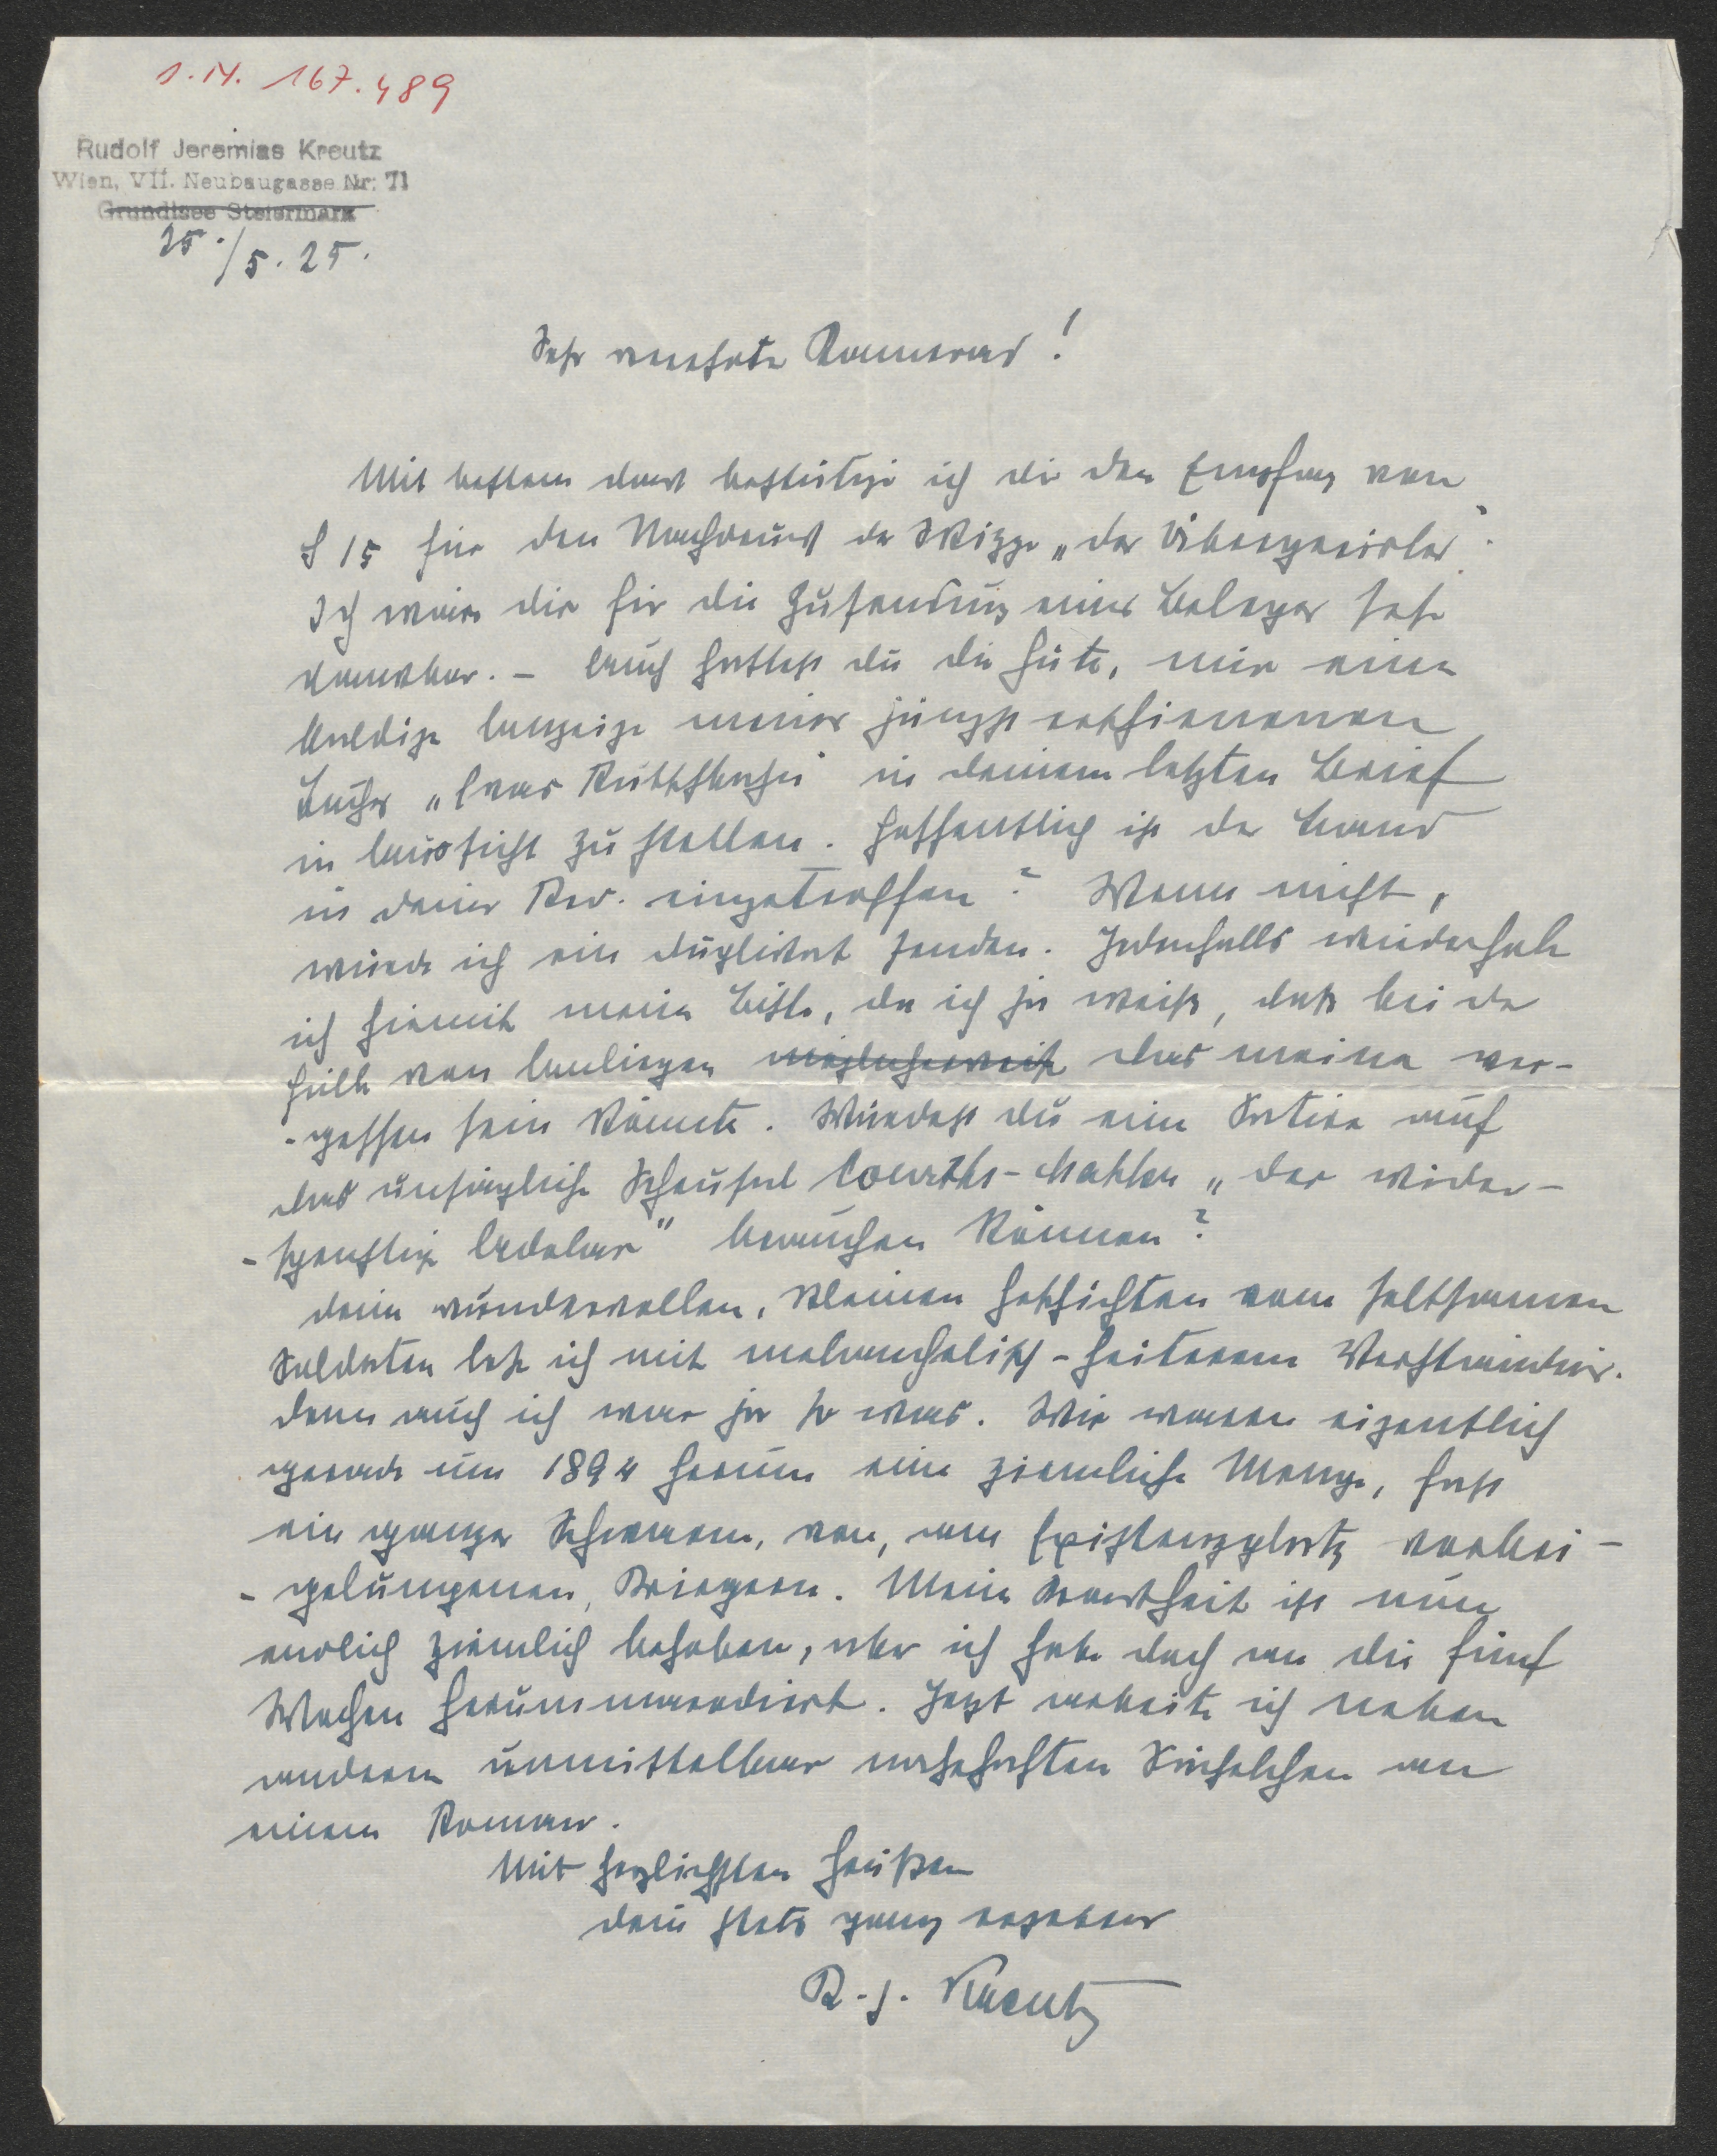 I.N. 167.489
Rudolf Jeremias Kreutz
Wien, VII. Neubaugasse Nr. 71
Grundlsee Steiermark
25./5.25.
Sehr verehrter Kamerad!
Mit bestem Dank bestätige ich dir den Empfang von
S 15 für den Nachdruck der Skizze „Der
Ich wäre dir für die Zusendung eines Beleges sehr
dankbar. – Auch hattest du die Güte, mir eine
baldige Anzeige meines jüngst erschienenen
Buches in deinem letzten Brief
in Aussicht zu stellen. Hoffentlich ist der Band
in deiner Red. eingetroffen? Wenn nicht,
würde ich ein Duplikat senden. Jedenfalls wiederhole
ich hiemit meine Bitte, da ich ja weiß, daß bei der
Fülle von Anliegen möglicherweise das meine ver-
-gessen sein könnte. Würdest du eine Satire auf
das unsägliche Scheusal Courths-Mahler „Der wider-
-spenstige Adalar" brauchen können?
Deine wundervollen, kleinen Geschichten vom seltsamen
Soldaten las ich mit melancholisch-heiterem Verständnis.
Denn auch ich war ja so was. Wir waren eigentlich
gerade um 1894 herum eine ziemliche Menge, fast
ein ganzer Schwarm, von, am Existenzplatz vorbei-
-gelungenen, Kriegern. Meine Krankheit ist nun
endlich ziemlich behoben, aber ich habe doch an die fünf
Wochen herummarodiert. Jetzt arbeite ich neben
andern unmittelbar nahrhaften Sächelchen an
einem Roman.
Mit herzlichsten Grüßen
dein stets ganz ergebener
R. J. Kreutz